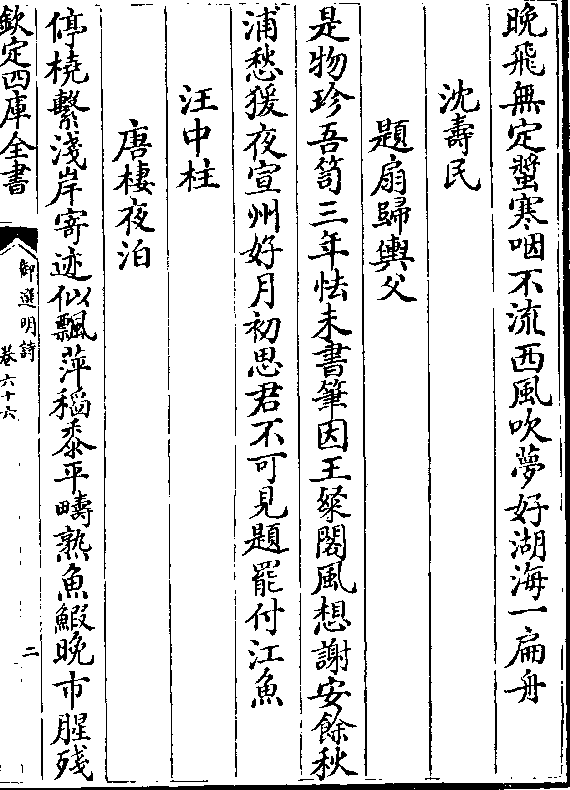 晚飛無定螿寒咽不流西風吹夢好湖海一扁舟
沈壽民
題扇歸輿父
是物珍吾笥三年怯未書筆因王粲閣風想謝安餘秋
浦愁猨夜宣州好月初思君不可見題罷付江魚
汪中柱
唐棲夜泊
停橈繫淺岸寄迹似飄萍稻黍平疇熟魚鰕晚市腥殘
欽定四庫全書
御選明詩
卷六十六
二